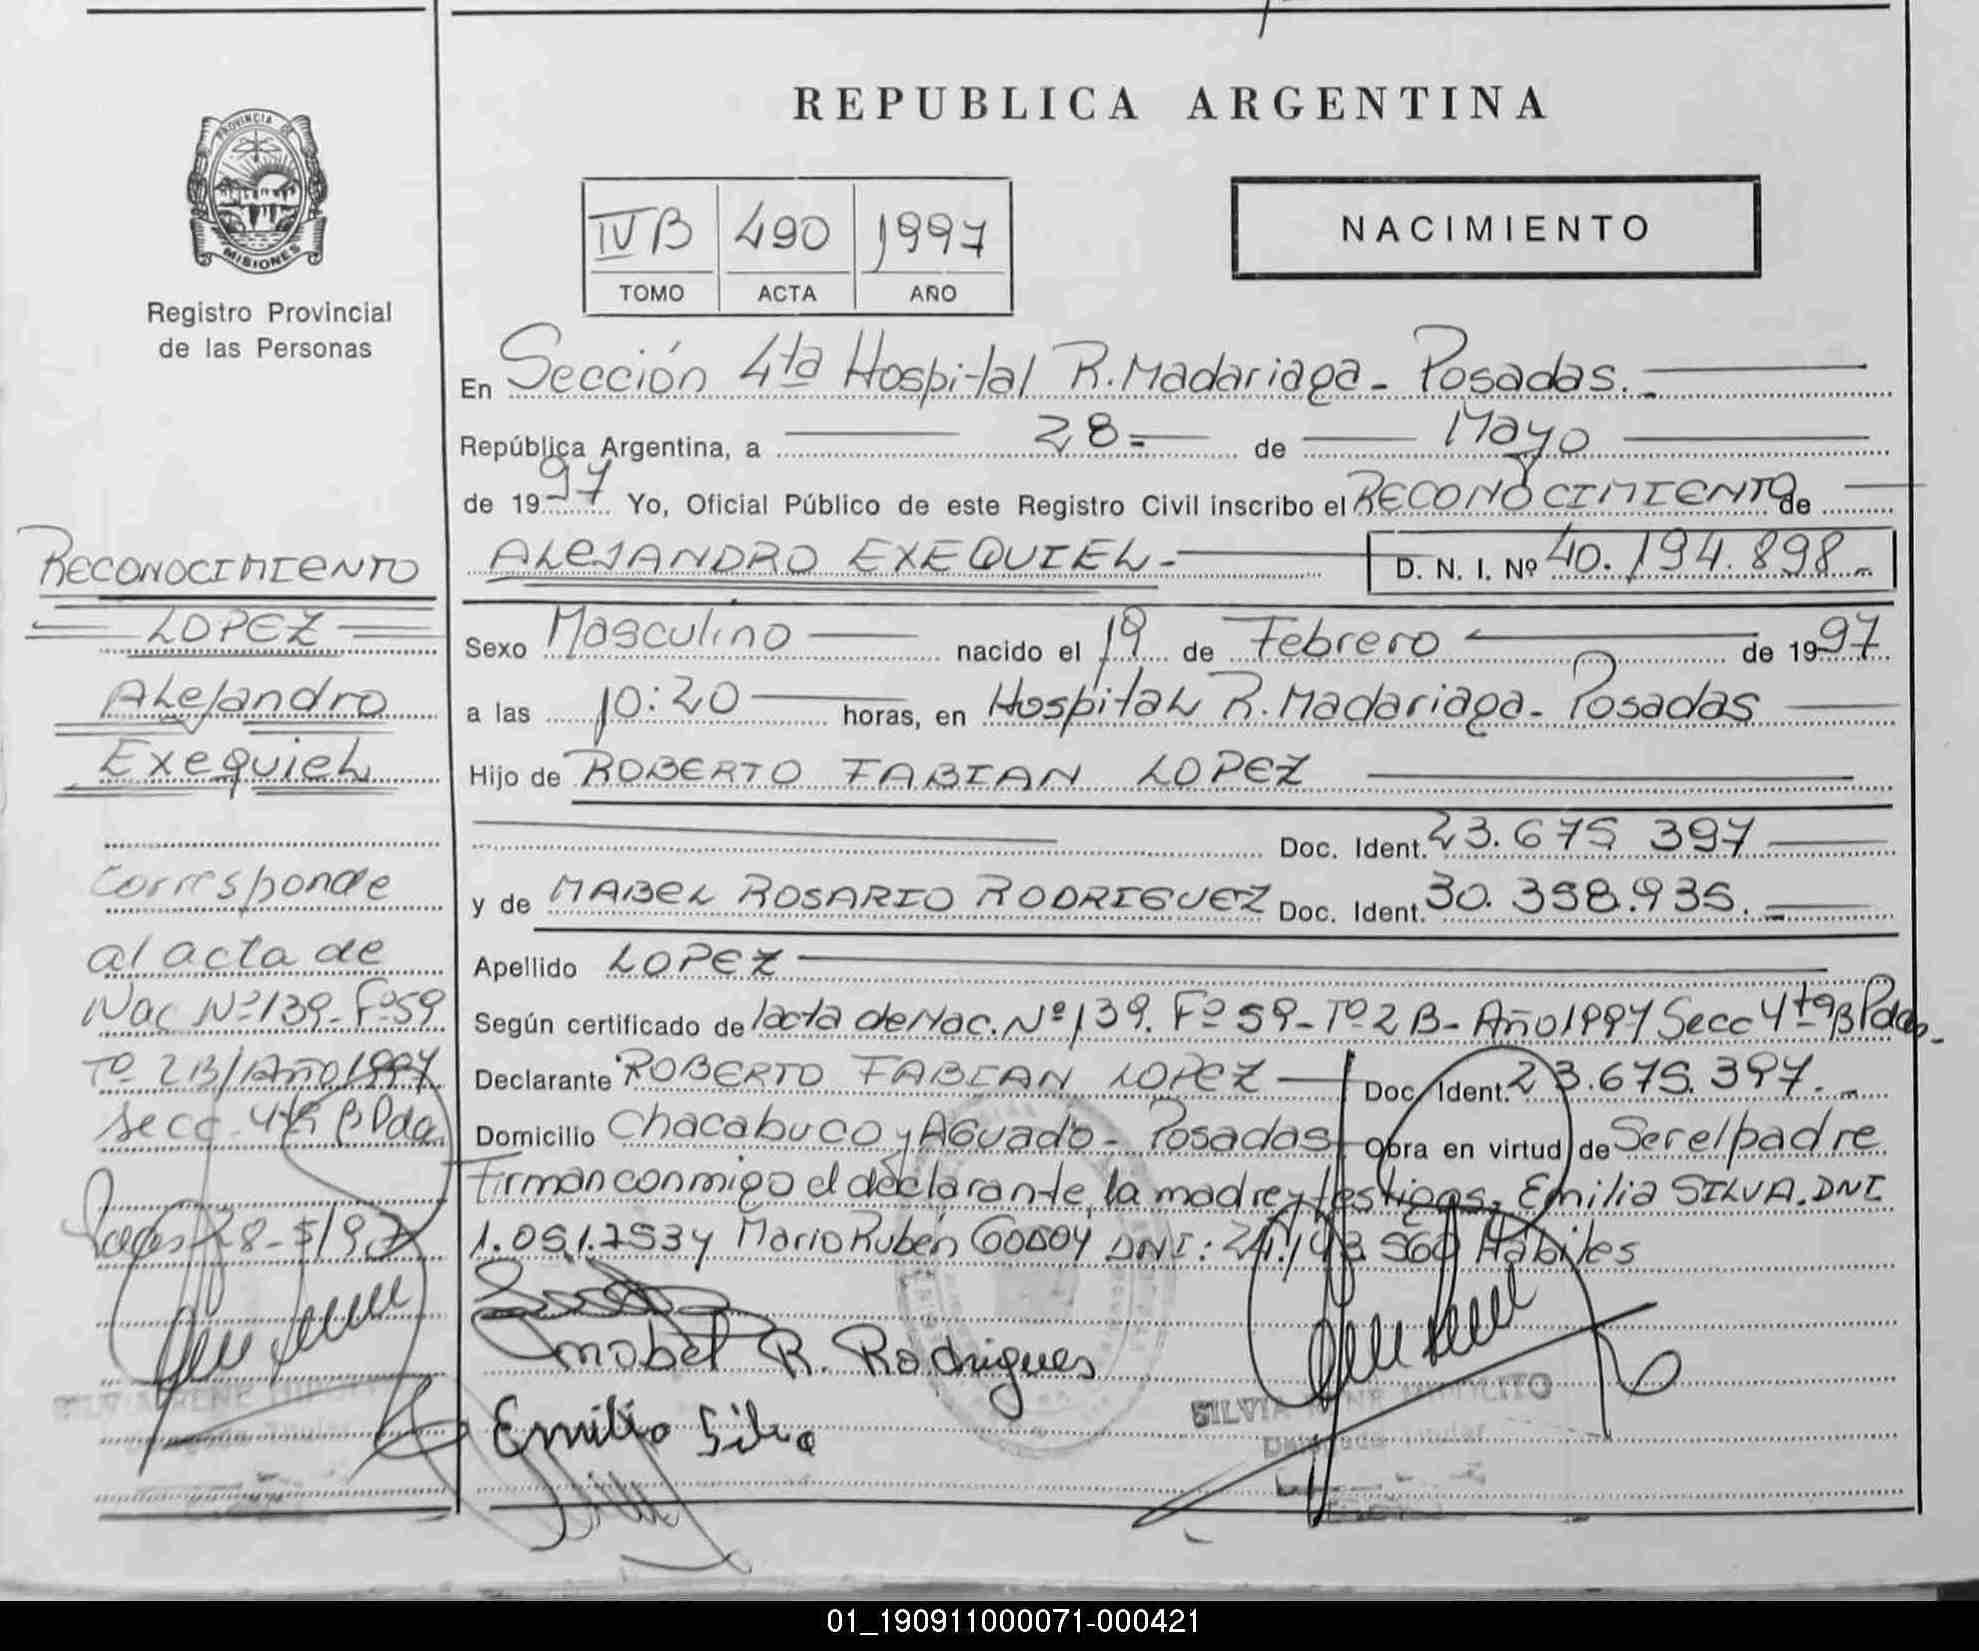 REPUBLICA ARGENTINA
PROVINCIA DE
MISIONES
Registro Provincial
de las Personas
IV B 490 1997
TOMO ACTA AÑO
NACIMIENTO
En Sección 4ta Hospital R. Madariaga - Posadas.
República Argentina, a 28 = de Mayo
de 1997 Yo, Oficial Público de este Registro Civil inscribo el RECONOCIMIENTO de
ALEJANDRO EXEQUIEL - D. N. I. Nº 40.194.898 -
Sexo Masculino nacido el 19 de Febrero de 1997
a las 10:20 horas, en Hospital R. Madariaga - Posadas
Hijo de ROBERTO FABIAN LOPEZ
Doc. Ident. 23.675 397
y de MABEL ROSARIO RODRIGUEZ Doc. Ident. 30.358.935.
Apellido LOPEZ
Según certificado de lacta de Nac. Nº 139. Fº 59 - Tº 2 B - Año 1997 Secc 4ta B Pdas -
Declarante ROBERTO FABIAN LOPEZ Doc. Ident. 23.675.397.
Domicilio Chacabuco y AGuado - Posadas Obra en virtud de Ser el padre
Firman conmigo el declarante, la madre y testigos, Emilia SILVA. DNI
Mario Rubén GODOY DNI: Hábiles
Mabel R. Rodrigues
Emilia Silva
SILVIA IRENE HIPOLITO
RECONOCIMIENTO
LOPEZ
Alejandro
Exequiel
Corresponde
al acta de
Nac Nº 139 - Fº 59
Tº 2 B / Año 1997
secc. 4ta B Pdas
Pdas 28-5/97
SILVIA IRENE
01_190911000071-000421